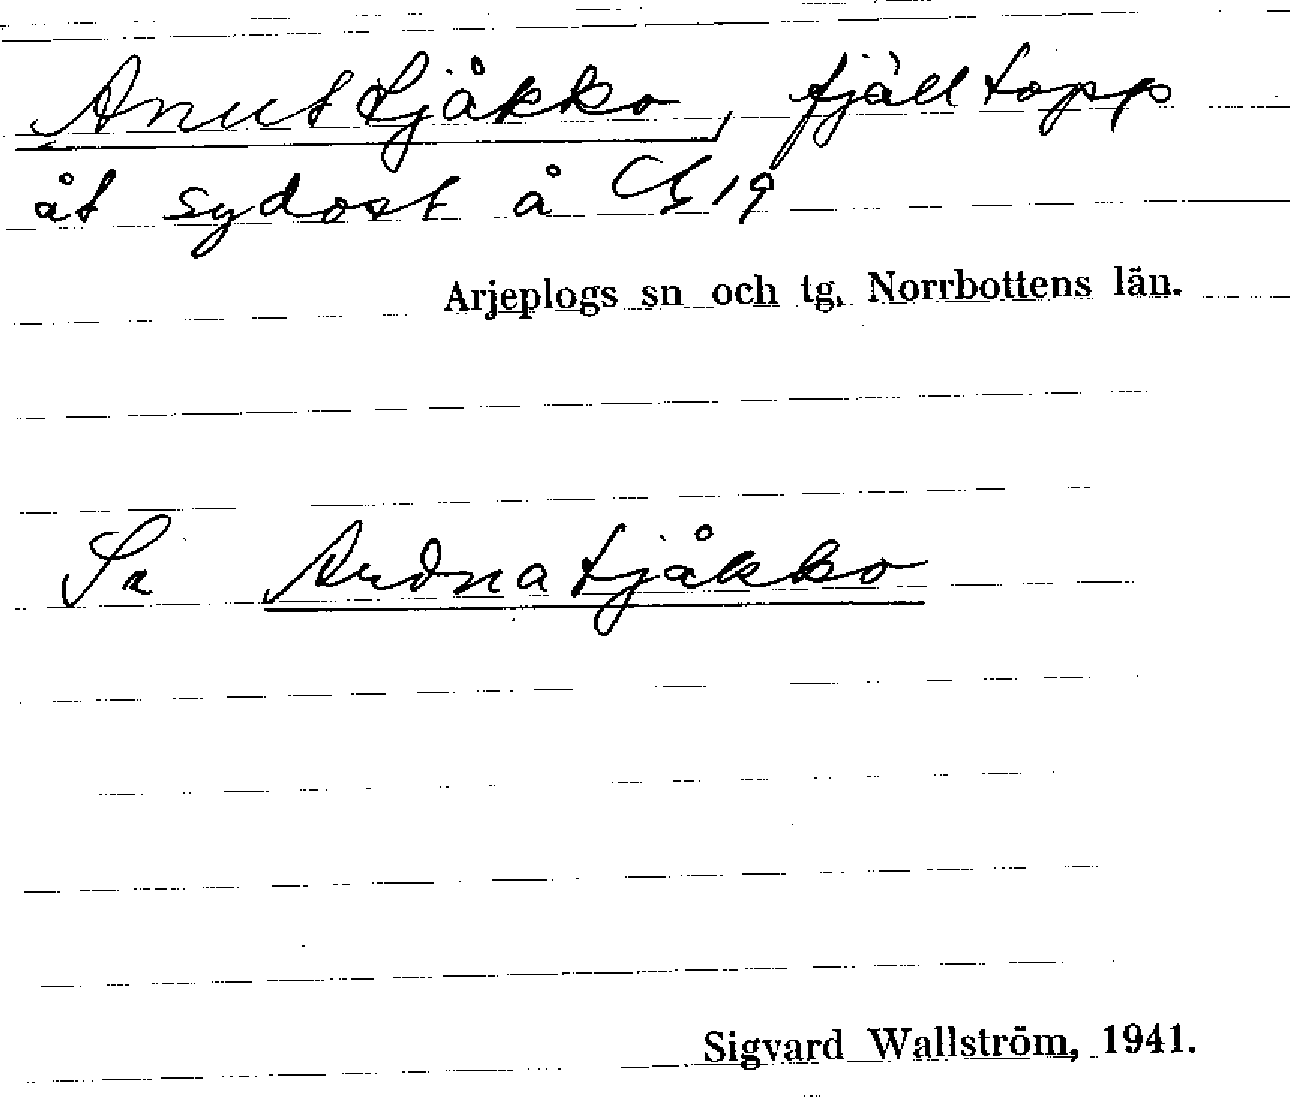 Anutstjåkko, fjälltopp
åt sydost å 19
Arjeplogs sn och tg. Norrbottens län.
Se Ardnatjåkko
Sigvard Wallström, 1941.